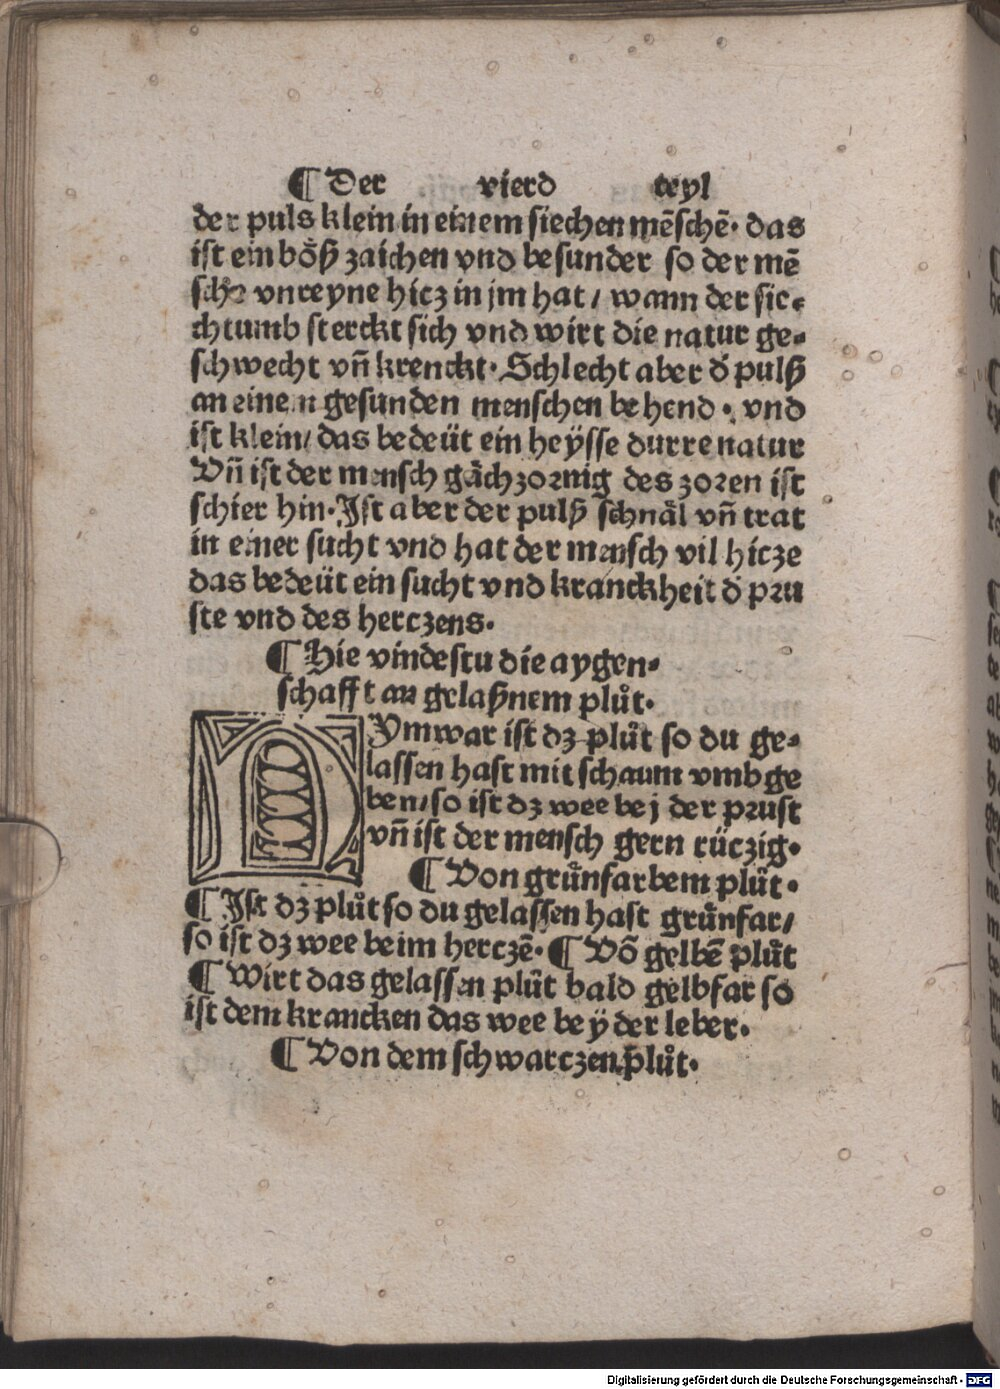 ¶ Der vierd teyl
der puls klein in einem siechen mēschē· das
ist ein bőß zaichen vnd besunder so der mē
sch vnreyne hicz in jm hat / wann der sie⸗
chtumb sterckt sich vnd wirt die natur ge⸗
schwecht vn̄ krenckt· Schlecht aber d̓ pulß
an einem gesunden menschen behend · vnd
ist klein/ das bedeüt ein heÿsse durre natur
Vn̄ ist der mensch gächzornig des zoren ist
schier hin· Ist aber der pulß schnäl vn̄ trat
in einer sucht vnd hat der mensch vil hicze
das bedeüt ein sucht vnd kranckheit d̓ pru
ste vnd des herczens·
¶ Hie vindestu die aygen⸗
schafft an gelaßnem plůt·
NYmwar ist dz plůt so du ge⸗
lassen hast mit schaum vmbge
ben/ so ist dz wee bej der prust
vn̄ ist der mensch gern rüczig·
¶ Von grůnfarbem plůt·
¶ Ist dz plůt so du gelassen hast grůnfar/
so ist dz wee beim herczē· ¶ Võ gelbē plůt
¶ Wirt das gelassen plůt bald gelbfar so
ist dem krancken das wee beÿ der leber·
¶ Von dem schwarczen plůt·
Digitalisierung gefördert durch die Deutsche Forschungsgemeinschaft - DFG